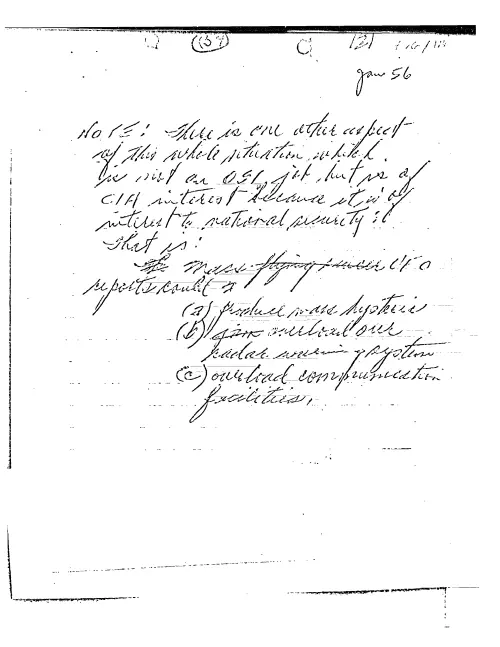 (154)
Jan 56
NOTE: There is one other aspect
of this whole situation which
is not an OSI job, but is of
CIA interest because it is of
interest to national security:
That is:
Mass flying saucer UFO
reports could
(a) produce mass hysteria
(b) jam overload our
radar warning system
(c) overload communication
facilities.